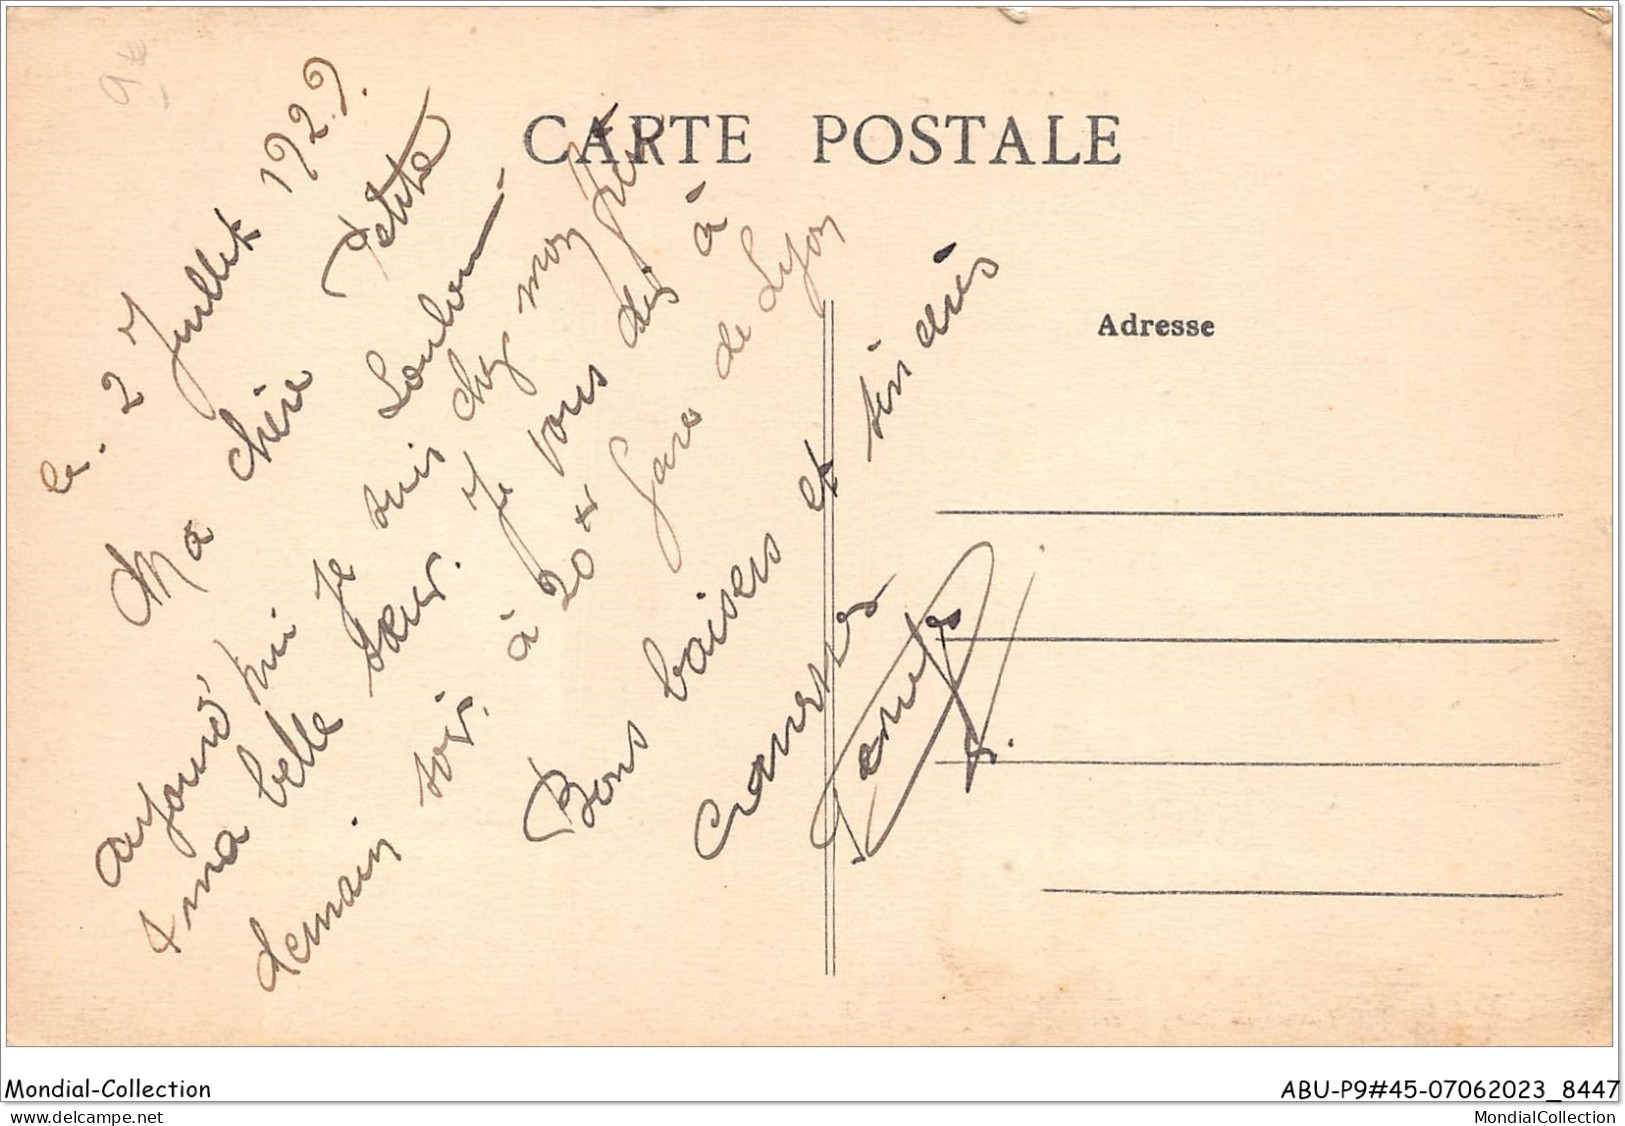 9€
CARTE POSTALE
Adresse
le. 2 Juillet 1929.
Ma chère Petite
Loulou
aujourd'hui je suis chez mon frère
& ma belle sœur. Je vous dis à
demain soir. à 20 H gare de Lyon
Bons baisers et
Mondial-Collection
ABU-P9#45-07062023_8447
du-plaisir-a-collectionner.com
MondialCollection